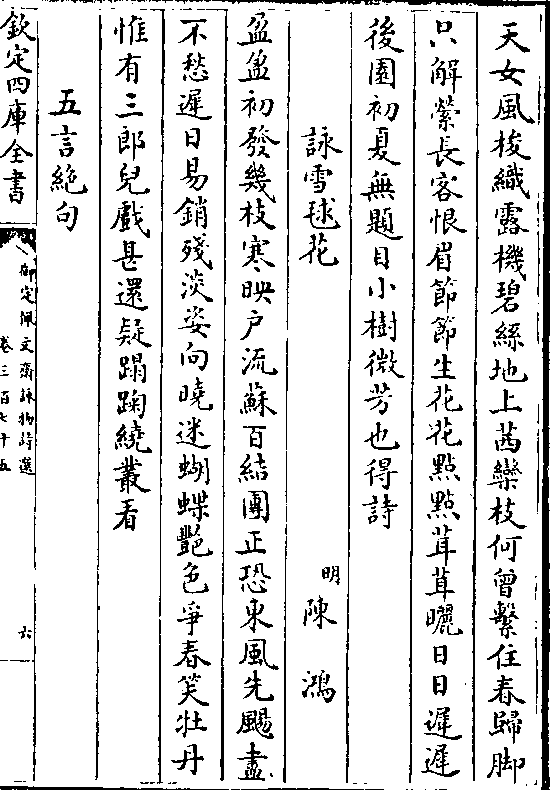 天女風梭織露機碧絲地上茜欒枝何曾繫住春歸脚
只解縈長客恨眉節節生花花點點茸茸曬日日遲遲
後園初夏無題目小樹微芳也得詩
詠雪毬花 明 陳鴻
盈盈初發幾枝寒映户流蘇百結團正恐東風先颺盡
不愁遲日易銷殘淡姿向曉迷蝴蝶艷色爭春笑牡丹
惟有三郎兒戲甚還疑蹋踘繞叢看
五言絶句
欽定四庫全書
御定佩文齋詠物詩選
卷三百七十五
六